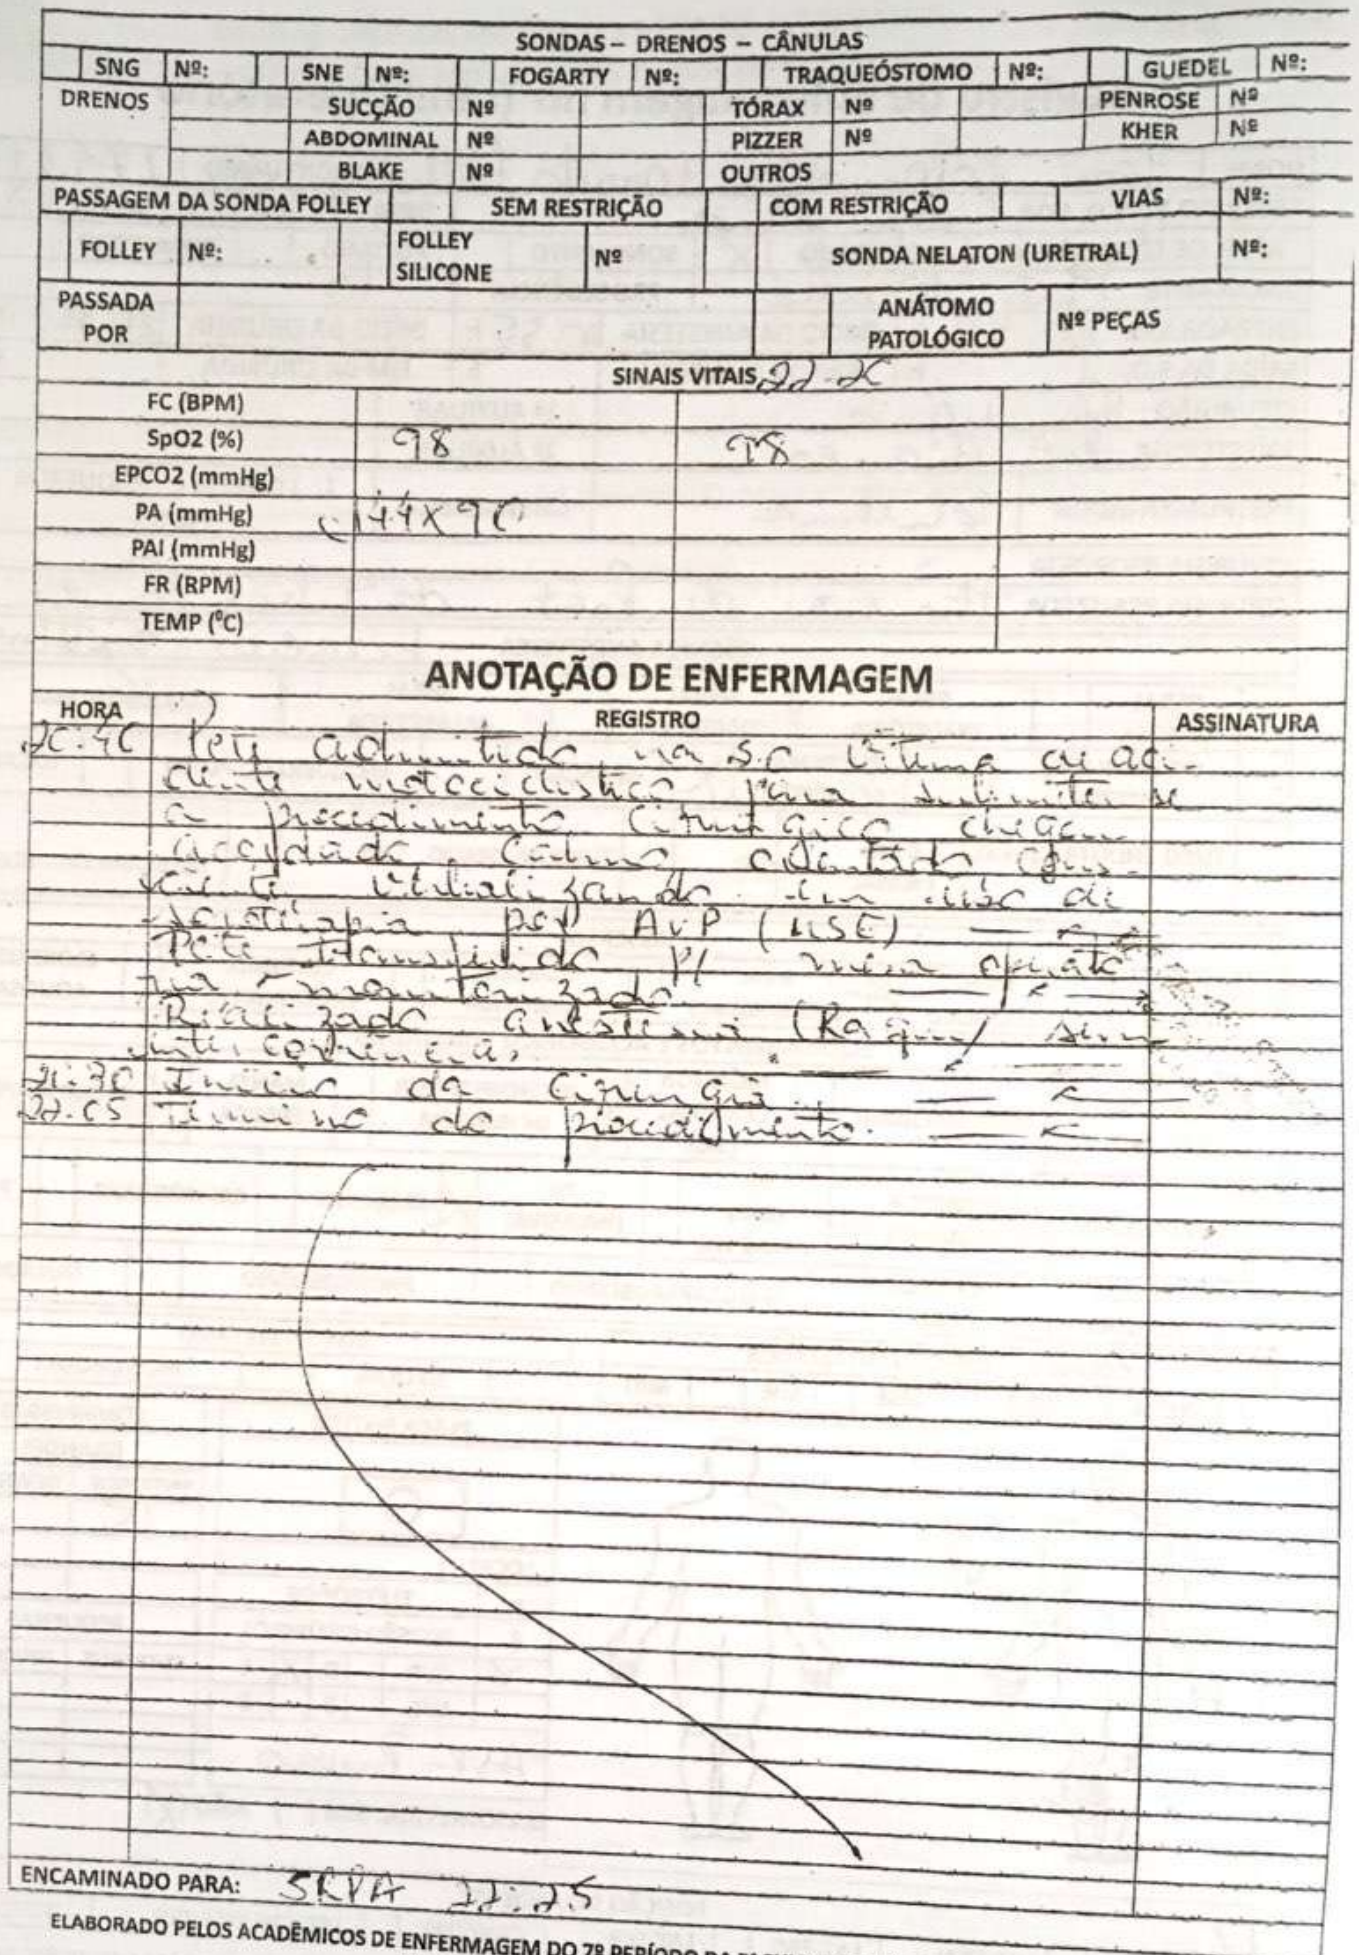 SONDAS – DRENOS – CÂNULAS
SNG Nº: SNE Nº: FOGARTY Nº: TRAQUEÓSTOMO Nº: GUEDEL Nº:
DRENOS SUCÇÃO Nº TÓRAX Nº PENROSE Nº
ABDOMINAL Nº PIZZER Nº KHER Nº
BLAKE Nº OUTROS
PASSAGEM DA SONDA FOLLEY SEM RESTRIÇÃO COM RESTRIÇÃO VIAS Nº:
FOLLEY Nº: FOLLEY SILICONE Nº SONDA NELATON (URETRAL) Nº:
PASSADA POR ANÁTOMO PATOLÓGICO Nº PEÇAS
SINAIS VITAIS
FC (BPM)
SpO2 (%) 98 98
EPCO2 (mmHg)
PA (mmHg) 144x90
PAI (mmHg)
FR (RPM)
TEMP (ºC)
ANOTAÇÃO DE ENFERMAGEM
HORA REGISTRO ASSINATURA
20:40 Pcte admitido na S.O vitima de aci-
dente motociclistico para submeter se
a procedimento cirurgico chegou
acordado, calmo, orientado cons-
ciente
por AVP (MSE)
Pcte transferido p/ mesa operató
ria monitorizado.
Realizado anestesia (Raqui) sem
intercorrencia.
21:30 Inicio da cirurgia.
22:05 Termino do procedimento.
ENCAMINADO PARA: SRPA 22:25
ELABORADO PELOS ACADÊMICOS DE ENFERMAGEM DO 7º PERÍODO DA